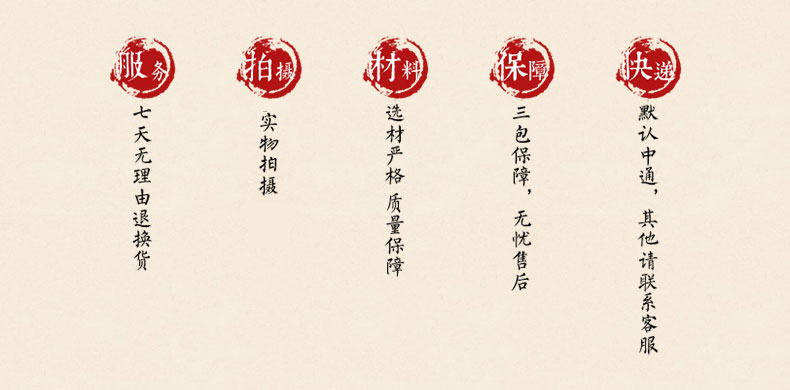 服务
七天无理由退换货
拍摄
实物拍摄
材料
选材严格 质量保障
保障
三包保障，无忧售后
快递
默认中通，其他请联系客服